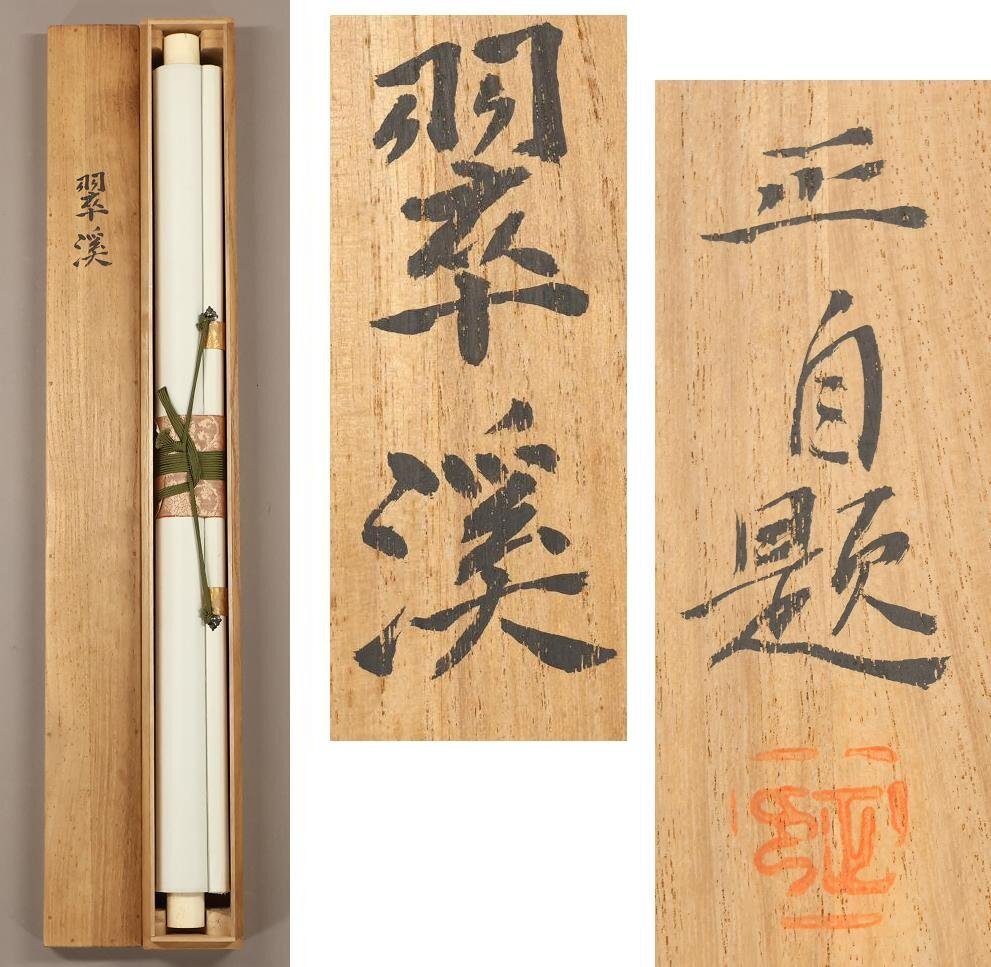 翠溪
翠溪
正自題